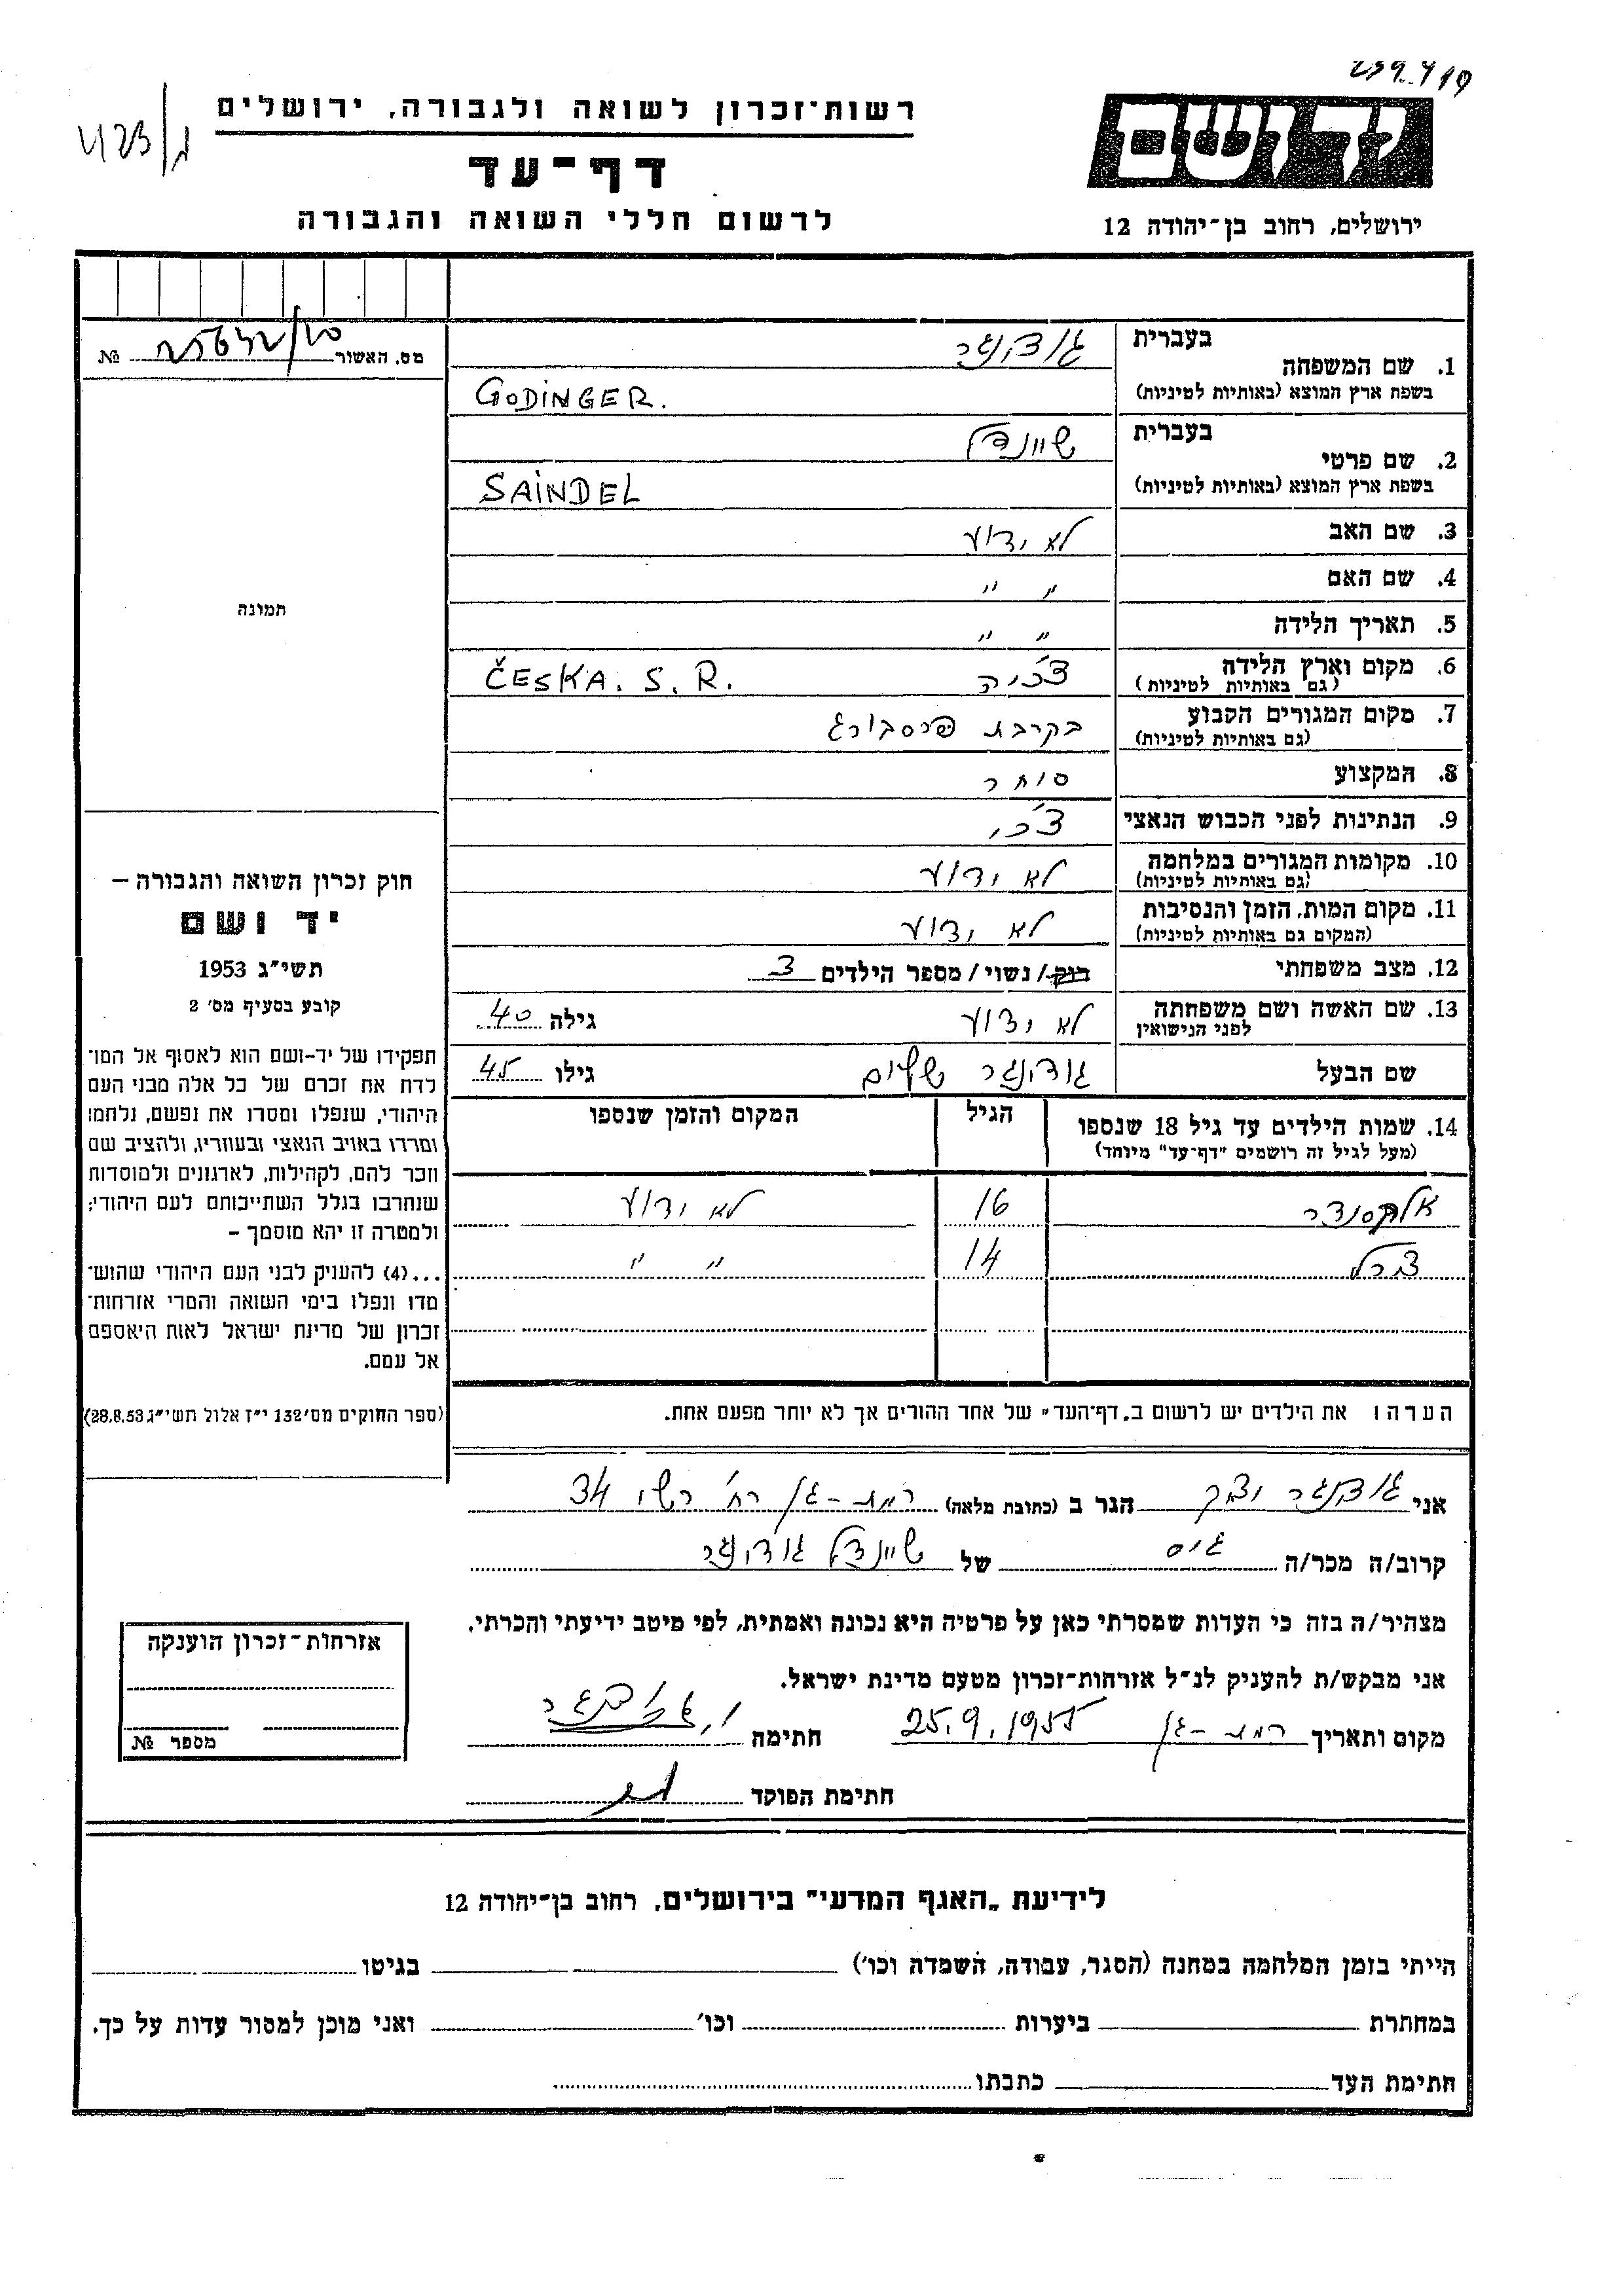 רשות־זכרון לשואה ולגבורה, ירושלים
דף־עד
לרשום חללי השואה והגבורה
יד ושם
ירושלים, רחוב בן־יהודה 12
בעברית
1. שם המשפחה גודינגר
בשפת ארץ המוצא (באותיות לטיניות) GODINGER.
בעברית
2. שם פרטי שיינדל
בשפת ארץ המוצא (באותיות לטיניות) SAINDEL
3. שם האב לא ידוע
4. שם האם " "
5. תאריך הלידה " "
6. מקום וארץ הלידה צ'כיה ČESKA. S. R.
(גם באותיות לטיניות)
7. מקום המגורים הקבוע בקרבת פרסבורג
(גם באותיות לטיניות)
8. המקצוע סוחר
9. הנתינות לפני הכבוש הנאצי צ'כי
10. מקומות המגורים במלחמה לא ידוע
(גם באותיות לטיניות)
11. מקום המות, הזמן והנסיבות לא ידוע
(המקום גם באותיות לטיניות)
12. מצב משפחתי רוק/נשוי/מספר הילדים 3
13. שם האשה ושם משפחתה לא ידוע גילה 40
לפני הנישואין
שם הבעל גודינגר שלום גילו 45
14. שמות הילדים עד גיל 18 שנספו הגיל המקום והזמן שנספו
(מעל לגיל זה רושמים "דף־עד" מיוחד)
אלכסנדר 16 לא ידוע
14 " "
הערה: את הילדים יש לרשום ב„דף־העד" של אחד ההורים אך לא יותר מפעם אחת.
מס. האשור №
תמונה
חוק זכרון השואה והגבורה –
יד ושם
תשי"ג 1953
קובע בסעיף מס' 2
תפקידו של יד-ושם הוא לאסוף אל המו־
לדת את זכרם של כל אלה מבני העם
היהודי, שנפלו ומסרו את נפשם, נלחמו
ומרדו באויב הנאצי ובעוזריו, ולהציב שם
וזכר להם, לקהילות, לארגונים ולמוסדות
שנחרבו בגלל השתייכותם לעם היהודי;
ולמטרה זו יהא מוסמך –
...(4) להעניק לבני העם היהודי שהוש־
מדו ונפלו בימי השואה והמרי אזרחות־
זכרון של מדינת ישראל לאות היאספם
אל עמם.
(ספר החוקים מס' 132 י"ז אלול תשי"ג 28.8.53)
אני גודינגר הגר ב (כתובת מלאה) רמת-גן רח' רשי 34
קרוב/ה מכר/ה גיס של שיינדל גודינגר
מצהיר/ה בזה כי העדות שמסרתי כאן על פרטיה היא נכונה ואמתית, לפי מיטב ידיעתי והכרתי.
אני מבקש/ת להעניק לנ"ל אזרחות־זכרון מטעם מדינת ישראל.
מקום ותאריך רמת-גן 25.9.1955 חתימה
חתימת הפוקד
אזרחות־זכרון הוענקה
מספר №
לידיעת „האגף המדעי" בירושלים, רחוב בן־יהודה 12
הייתי בזמן המלחמה במחנה (הסגר, עבודה, השמדה וכו') בגיטו
במחתרת ביערות וכו' ואני מוכן למסור עדות על כך.
חתימת העד כתבתו